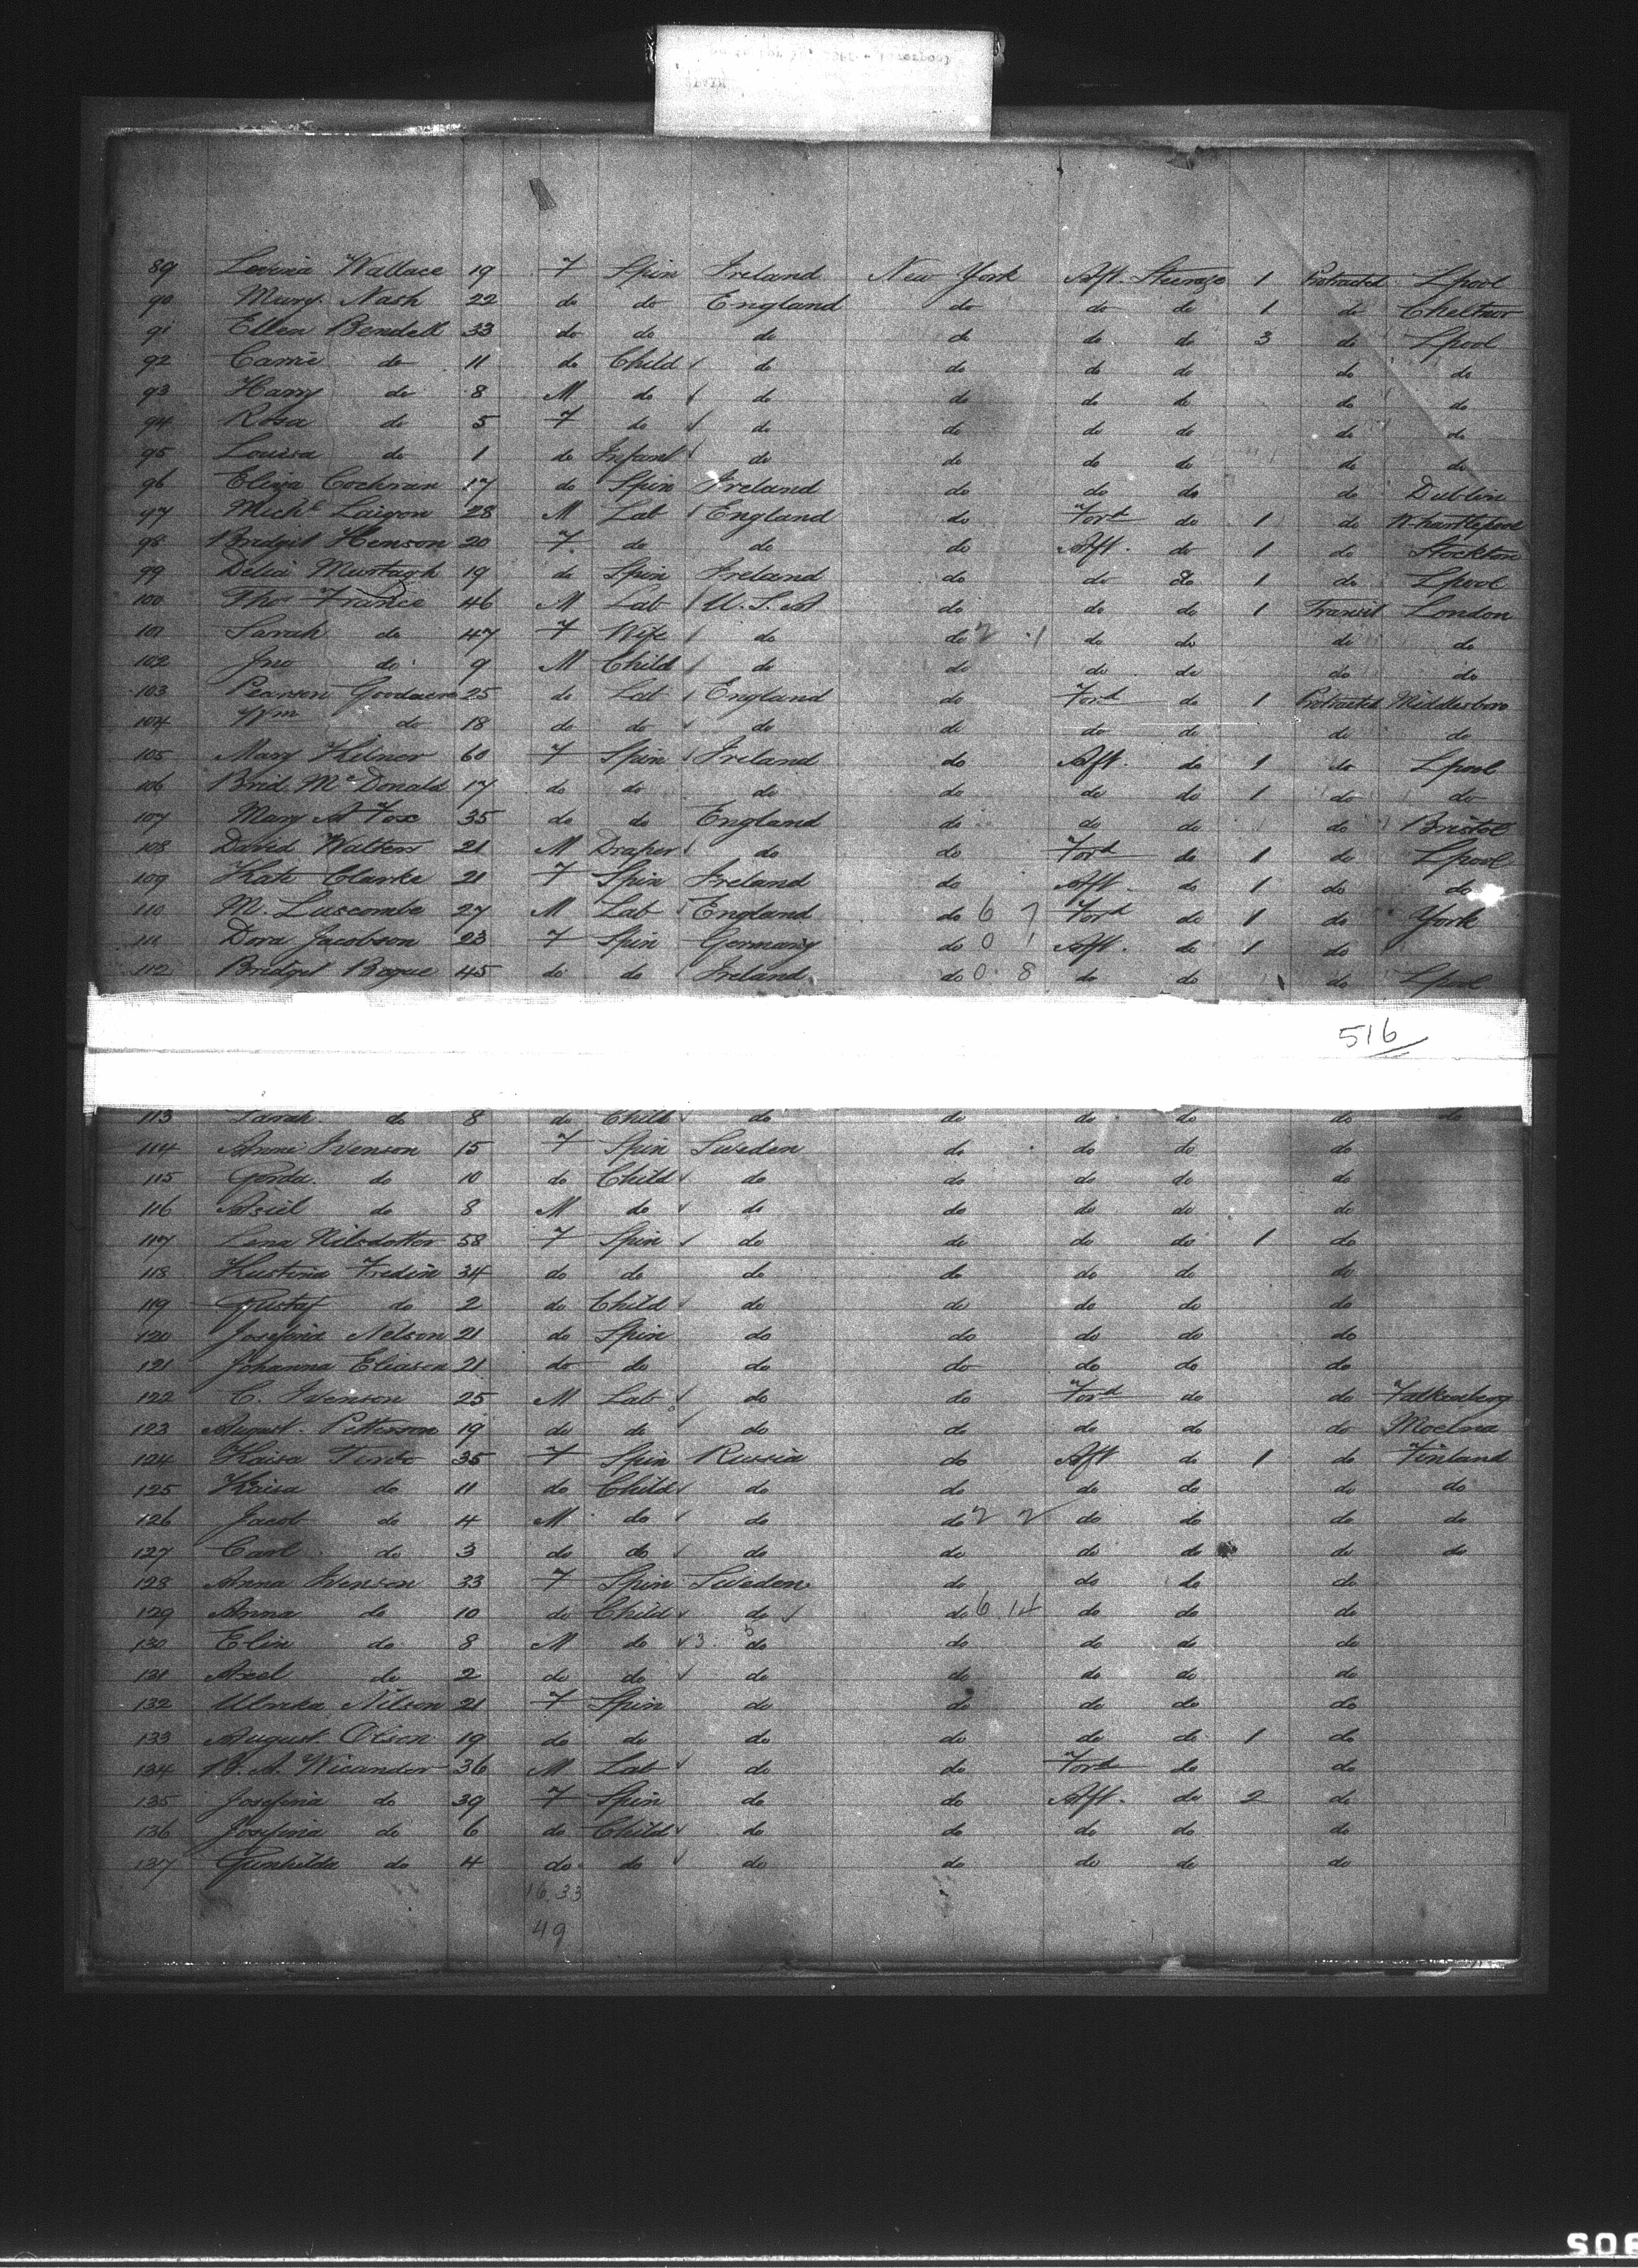 89 Lovina Wallace 19 F Spin Ireland New York Aft. Steerage 1 Protracted Lpool
90 Mary Nash 22 do do England do do do 1 do
91 Ellen Bendell 33 do do do do do do 3 do Lpool
92 Carrie do 11 do Child do do do do do do
93 Harry do 8 M do do do do do do do
94 Rosa do 5 F do do do do do do do
95 Louisa do 1 do Infant do do do do do do
96 Eliza Cochran 17 do Spin Ireland do do do do Dublin
97 Michl Laigon 28 M Lab England do Ford do 1 do W. hartlepool
98 Bridget Henson 20 F do do do Aft. do 1 do Stockton
99 Delia Murtagh 19 do Spin Ireland do do do 1 do Lpool
100 Thos France 46 M Lab U.S.A do do do 1 Transit London
101 Sarah do 47 F Wife do do 2 1 do do do do
102 Jno do 9 M Child do do do do do do
103 Pearson Goodacre 25 do Lab England do Ford do 1 Protracted Middlesboro
104 Wm do 18 do do do do do do do do
105 Mary Kilner 60 F Spin Ireland do Aft. do 1 do Lpool
106 Brid. McDonald 17 do do do do do do 1 do do
107 Mary A Fox 35 do do England do do do do Bristol
108 David Walters 21 M Draper do do Ford do 1 do Lpool
109 Kate Clarke 21 F Spin Ireland do Aft. do 1 do do
110 M. Luscombe 27 M Lab England do 6 7 Ford do 1 do York
111 Dora Jacobson 23 F Spin Germany do 0 1 Aft. do 1 do
112 Bridget Bogue 45 do do Ireland do 0 8 do do 1 do Lpool
516
113 Sarah do 8 do Child do do do do do do
114 Anna Ivenson 15 F Spin Sweden do do do do
115 Gerda do 10 do Child do do do do do
116 do 8 M do do do do do do
117 Lena Nilsdotter 58 F Spin do do do do 1 do
118 Kustina Fredin 34 do do do do do do do
119 Gustaf do 2 do Child do do do do do
120 Josefina Nelson 21 do Spin do do do do do
121 Johanna Eliason 21 do do do do do do do
122 C. Ivenson 25 M Lab do do Ford do do Falkenberg
123 August Petterson 19 do do do do do do do
124 Kaisa 35 F Spin Russia do Aft do 1 do Finland
125 Kaisa do 11 do Child do do do do do do
126 Jacob do 4 M do do do 2 2 do do do do
127 Carl do 3 do do do do do do do do
128 Anna Ivenson 33 F Spin Sweden do do do do
129 Anna do 10 do Child do do 6 14 do do do
130 Elin do 8 M do 3 5 do do do do do
131 Axel do 2 do do do do do do do
132 Ulrika Nilson 21 F Spin do do do do do
133 August Olson 19 do do do do do do 1 do
134 B. A. Wicander 36 M Lab do do Ford do do
135 Josefina do 39 F Spin do do Aft. do 2 do
136 Josefina do 6 do Child do do do do do
137 Gunhilda do 4 do do do do do do do
16.33
49